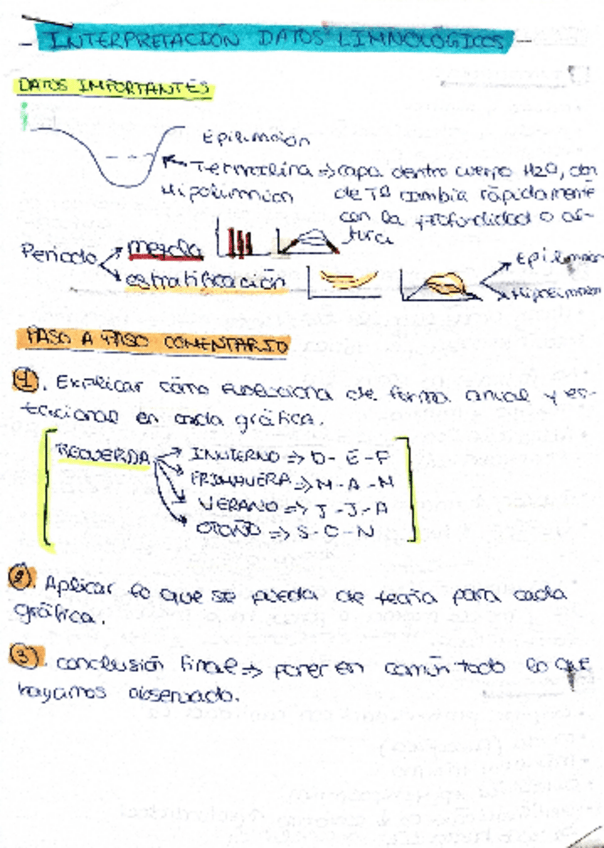 INTERPRETACIÓN DATOS LIMNOLÓGICOS
DATOS IMPORTANTES
Epilimnion
Termoclina => capa dentro cuerpo H2O, don
Hipolimnion de Tª cambia rápidamente
con la profundidad o al-
tura
Periodo mezcla
estratificación
Epilimnion
Hipolimnion
PASO A PASO COMENTARIO
1. Explicar cómo evoluciona de forma anual y es-
tacional en cada gráfica.
RECUERDA INVIERNO => D-E-F
PRIMAVERA => M-A-M
VERANO => J-J-A
OTOÑO => S-O-N
2. Aplicar lo que se pueda de teoría para cada
gráfica.
3. conclusión final => poner en común todo lo que
hayamos observado.